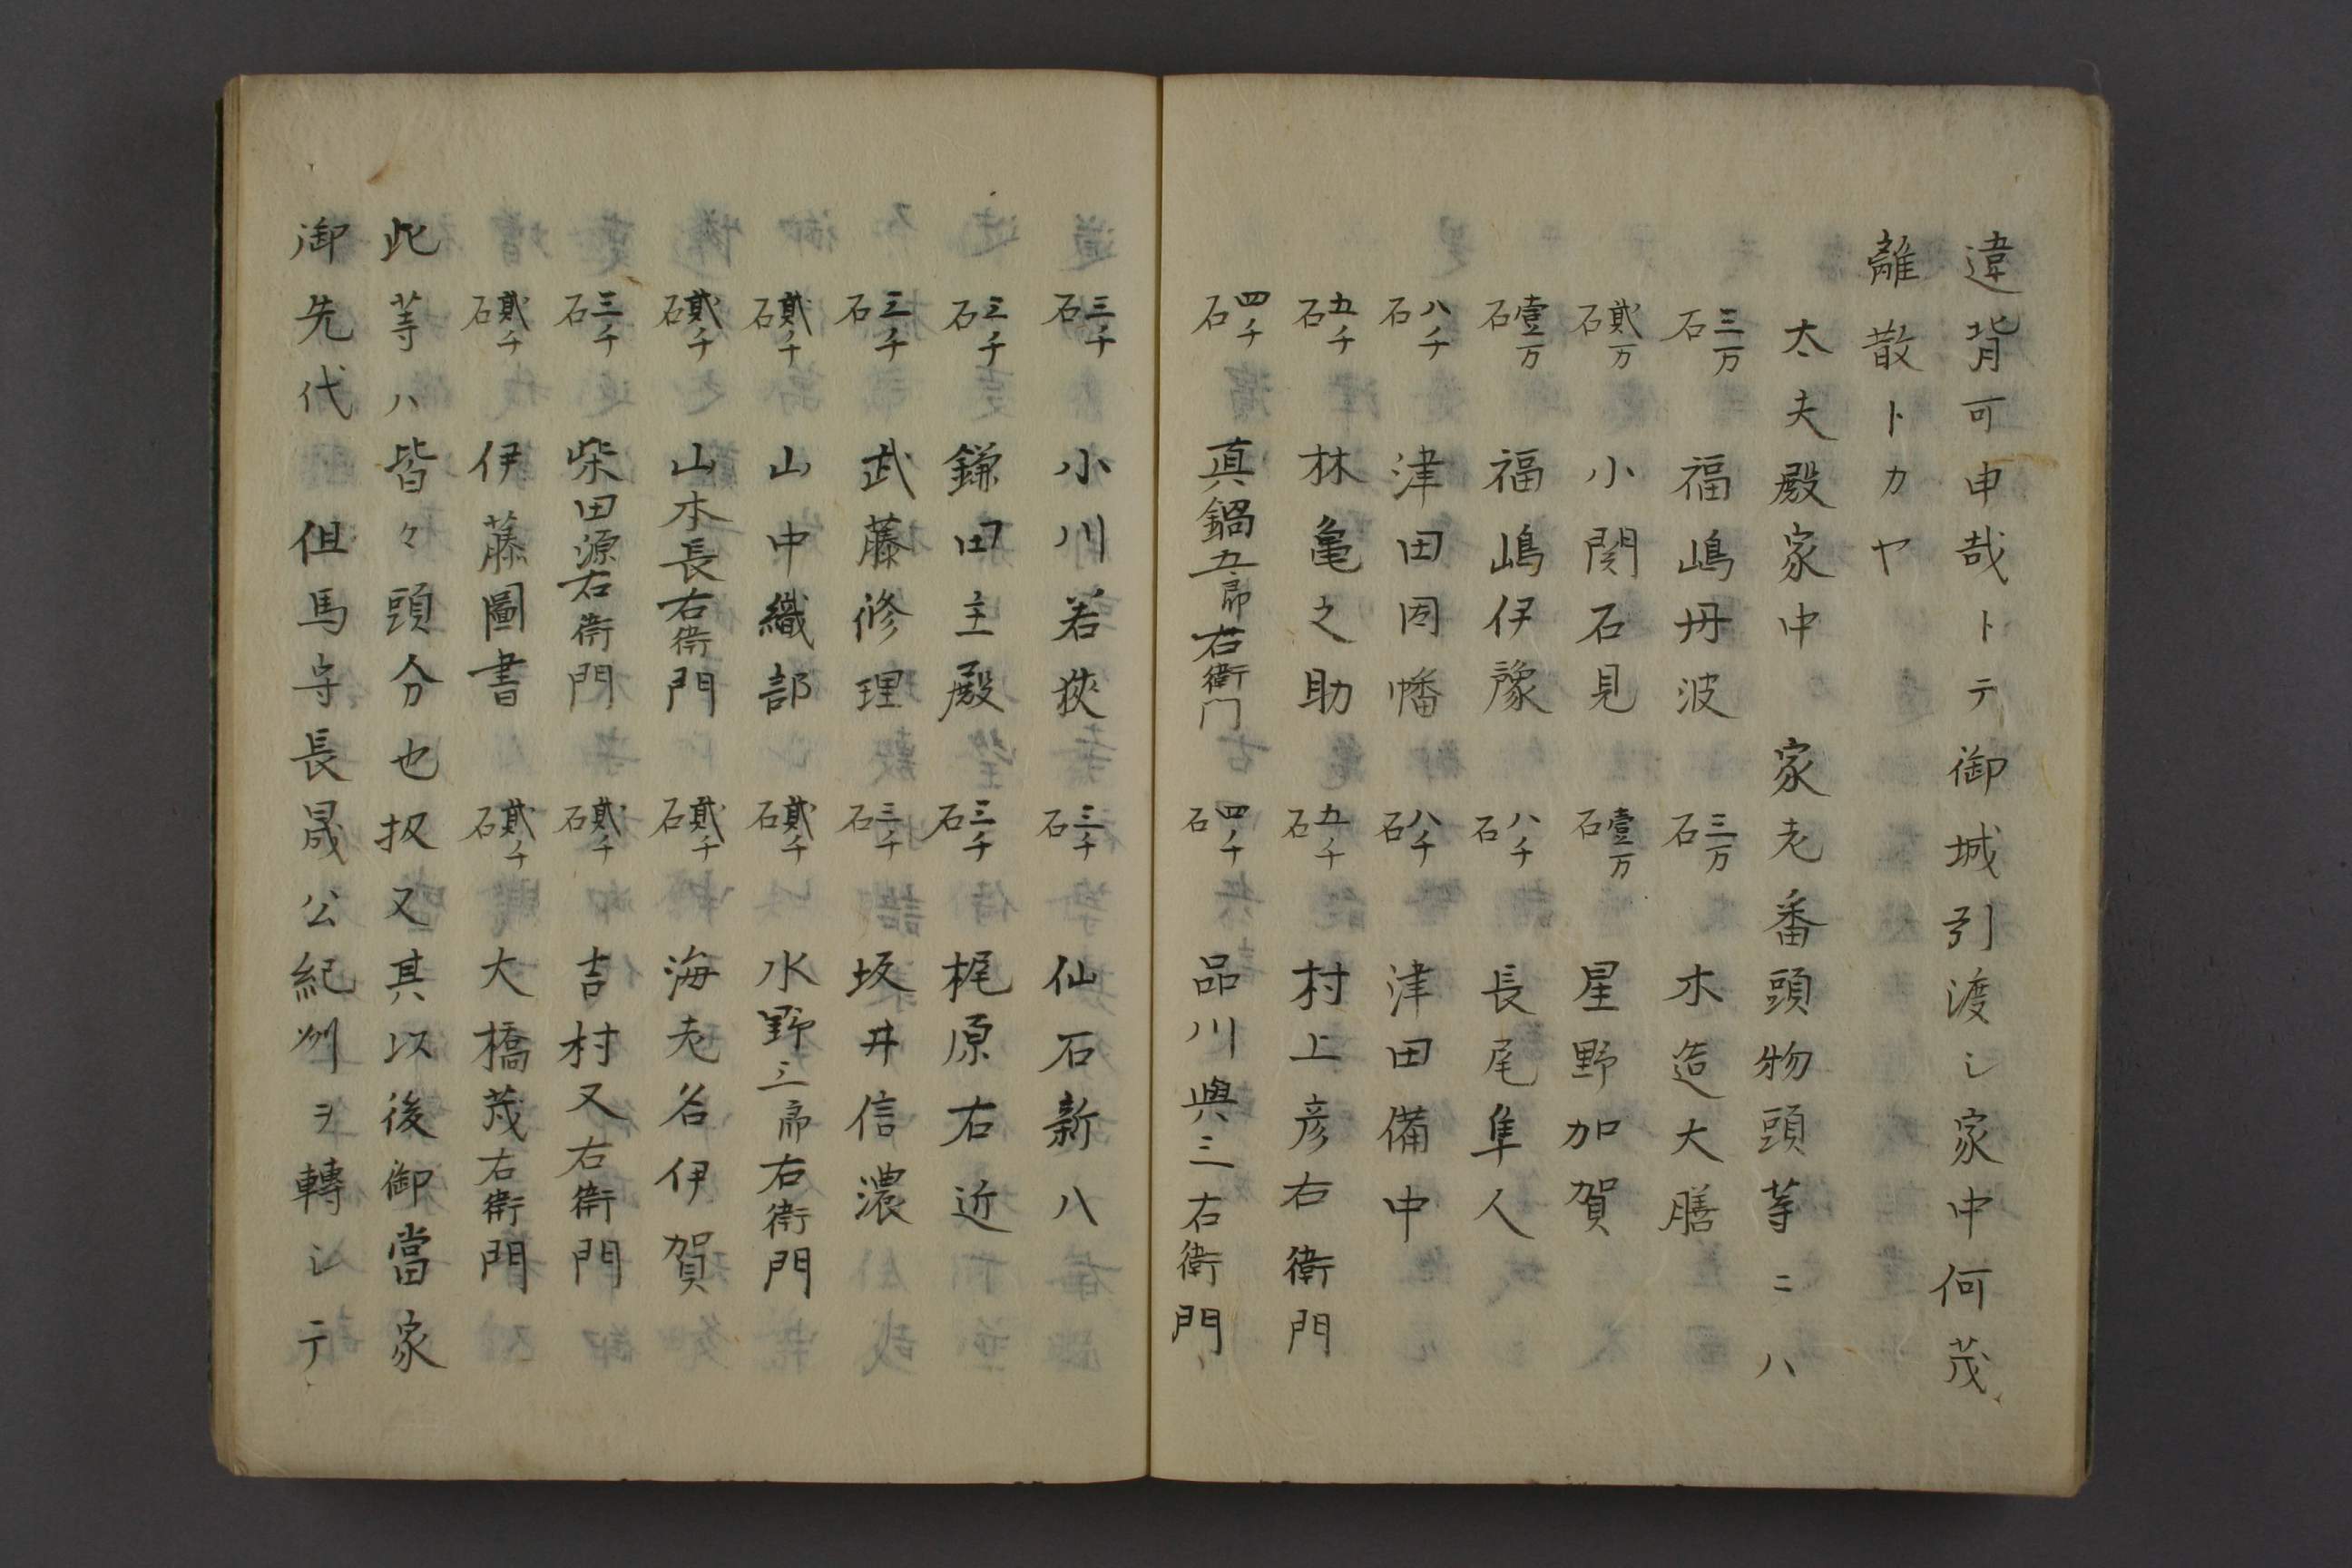 違背可申哉トテ御城引渡シ家中何茂
離散トカヤ
太夫殿家中　家老番頭物頭等ニハ
三万石　福嶋丹波　三万石　木造大膳
貳万石　小関石見　壹万石　星野加賀
壹万石　福嶋伊豫　八千石　長尾隼人
八千石　津田因幡　八千石　津田備中
五千石　林亀之助　五千石　村上彦右衛門
四千石　真鍋五郎右衛门　四千石　品川與三右衛門
三千石　小川若狭　三千石　仙石新八
三千石　鎌田主殿　三千石　梶原右近
三千石　武藤修理　三千石　坂井信濃
貳千石　山中織部　貳千石　水野三郎右衛門
貳千石　山木長右衛門　貳千石　海老名伊賀
三千石　柴田源右衛門　貳千石　吉村又右衛門
貳千石　伊藤圖書　貳千石　大橋茂右衛門
此等ハ皆々頭分也扨又其以後御當家
御先代　但馬守長晟公紀州ヲ轉シテ